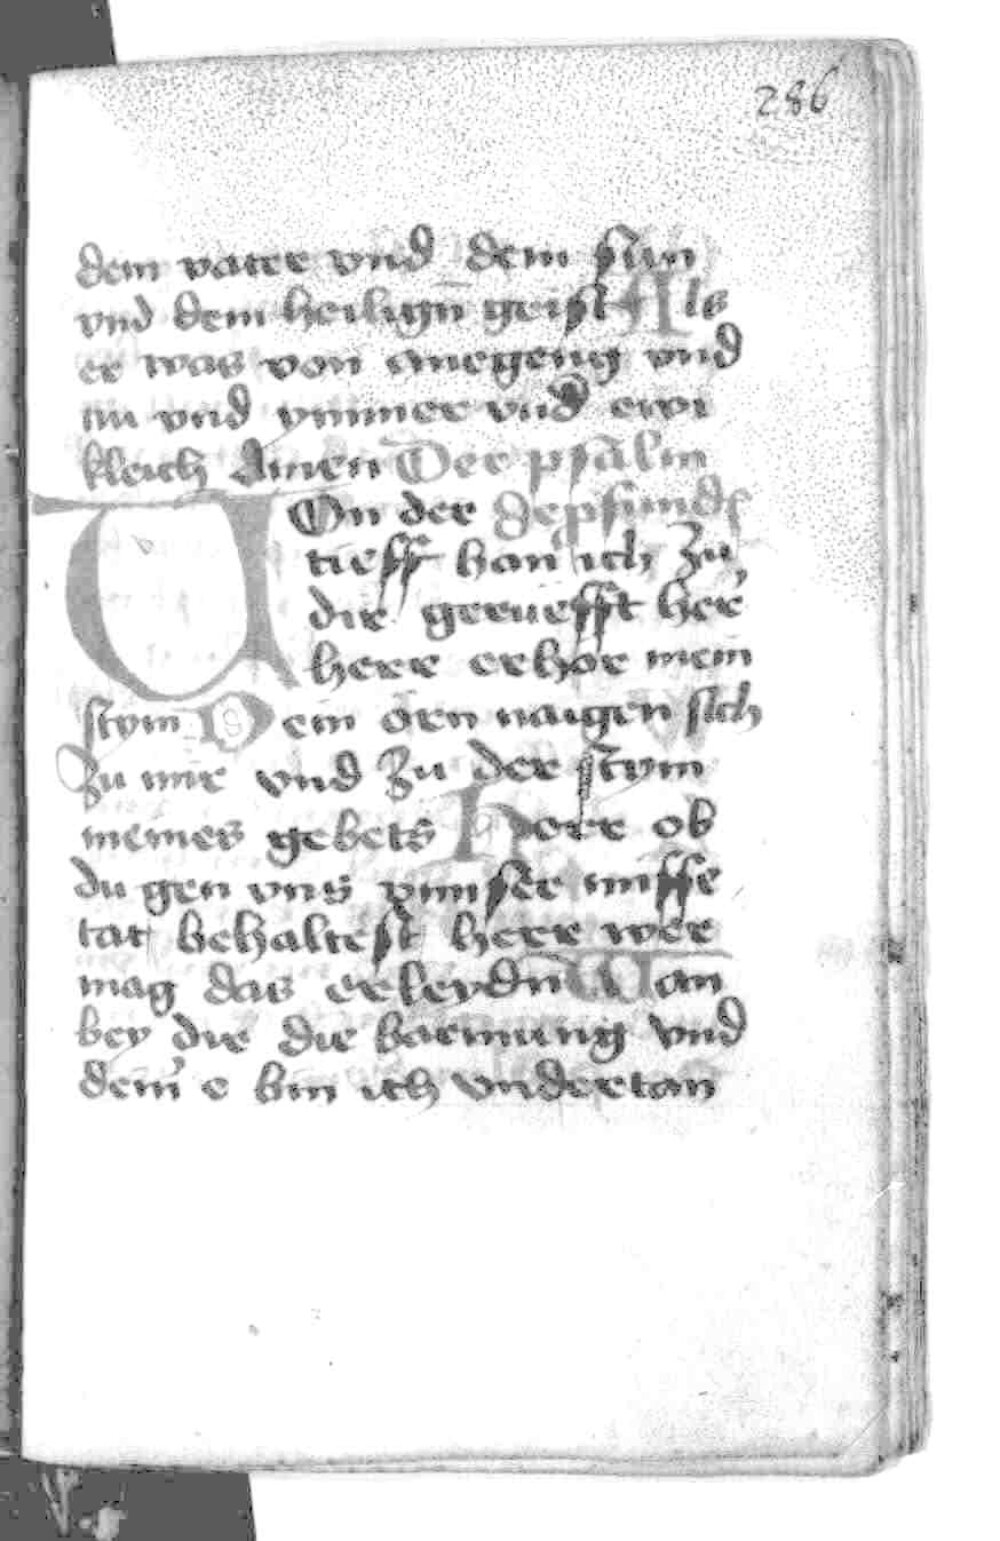 286
dem vater vnd dem sun
vnd dem heiligñ geist Als
er was von anegeng vnd
nu vnd ymmer vnd ewi
kleich Amen Der psalm
VOn der depfunds
tieff han ich zu
dir geruefft her
herr erhör mein
stym Dein örn naigen sich
zu mir vnd zu der stym
meines gebets Herr ob
du gen vns vnnser misse
tat behaltest herr wer
mag das erleydn Wan
bey dir die barmung vnd
dein e bin ich vndertan